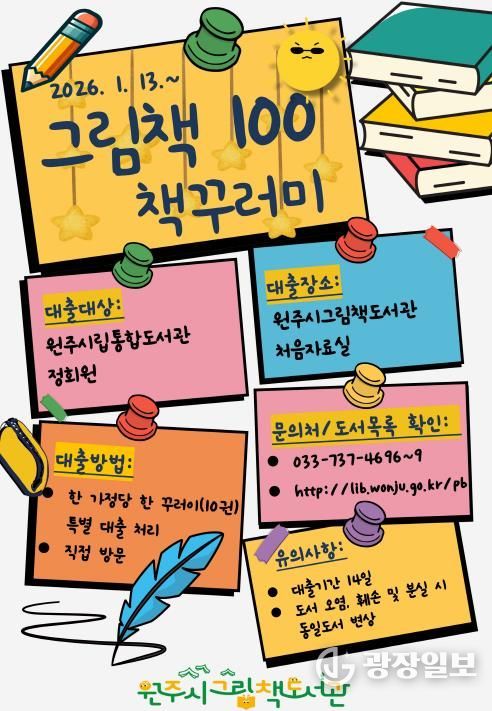 2026. 1. 13.~
그림책 100
책꾸러미
대출대상:
원주시립통합도서관
정회원
대출장소:
원주시그림책도서관
처음자료실
대출방법:
한 가정당 한 꾸러미(10권)
특별 대출 처리
직접 방문
문의처/도서목록 확인:
033-737-4696~9
http://lib.wonju.go.kr/pb
유의사항:
대출기간 14일
도서 오염, 훼손 및 분실 시
동일도서 변상
광장일보
원주시그림책도서관